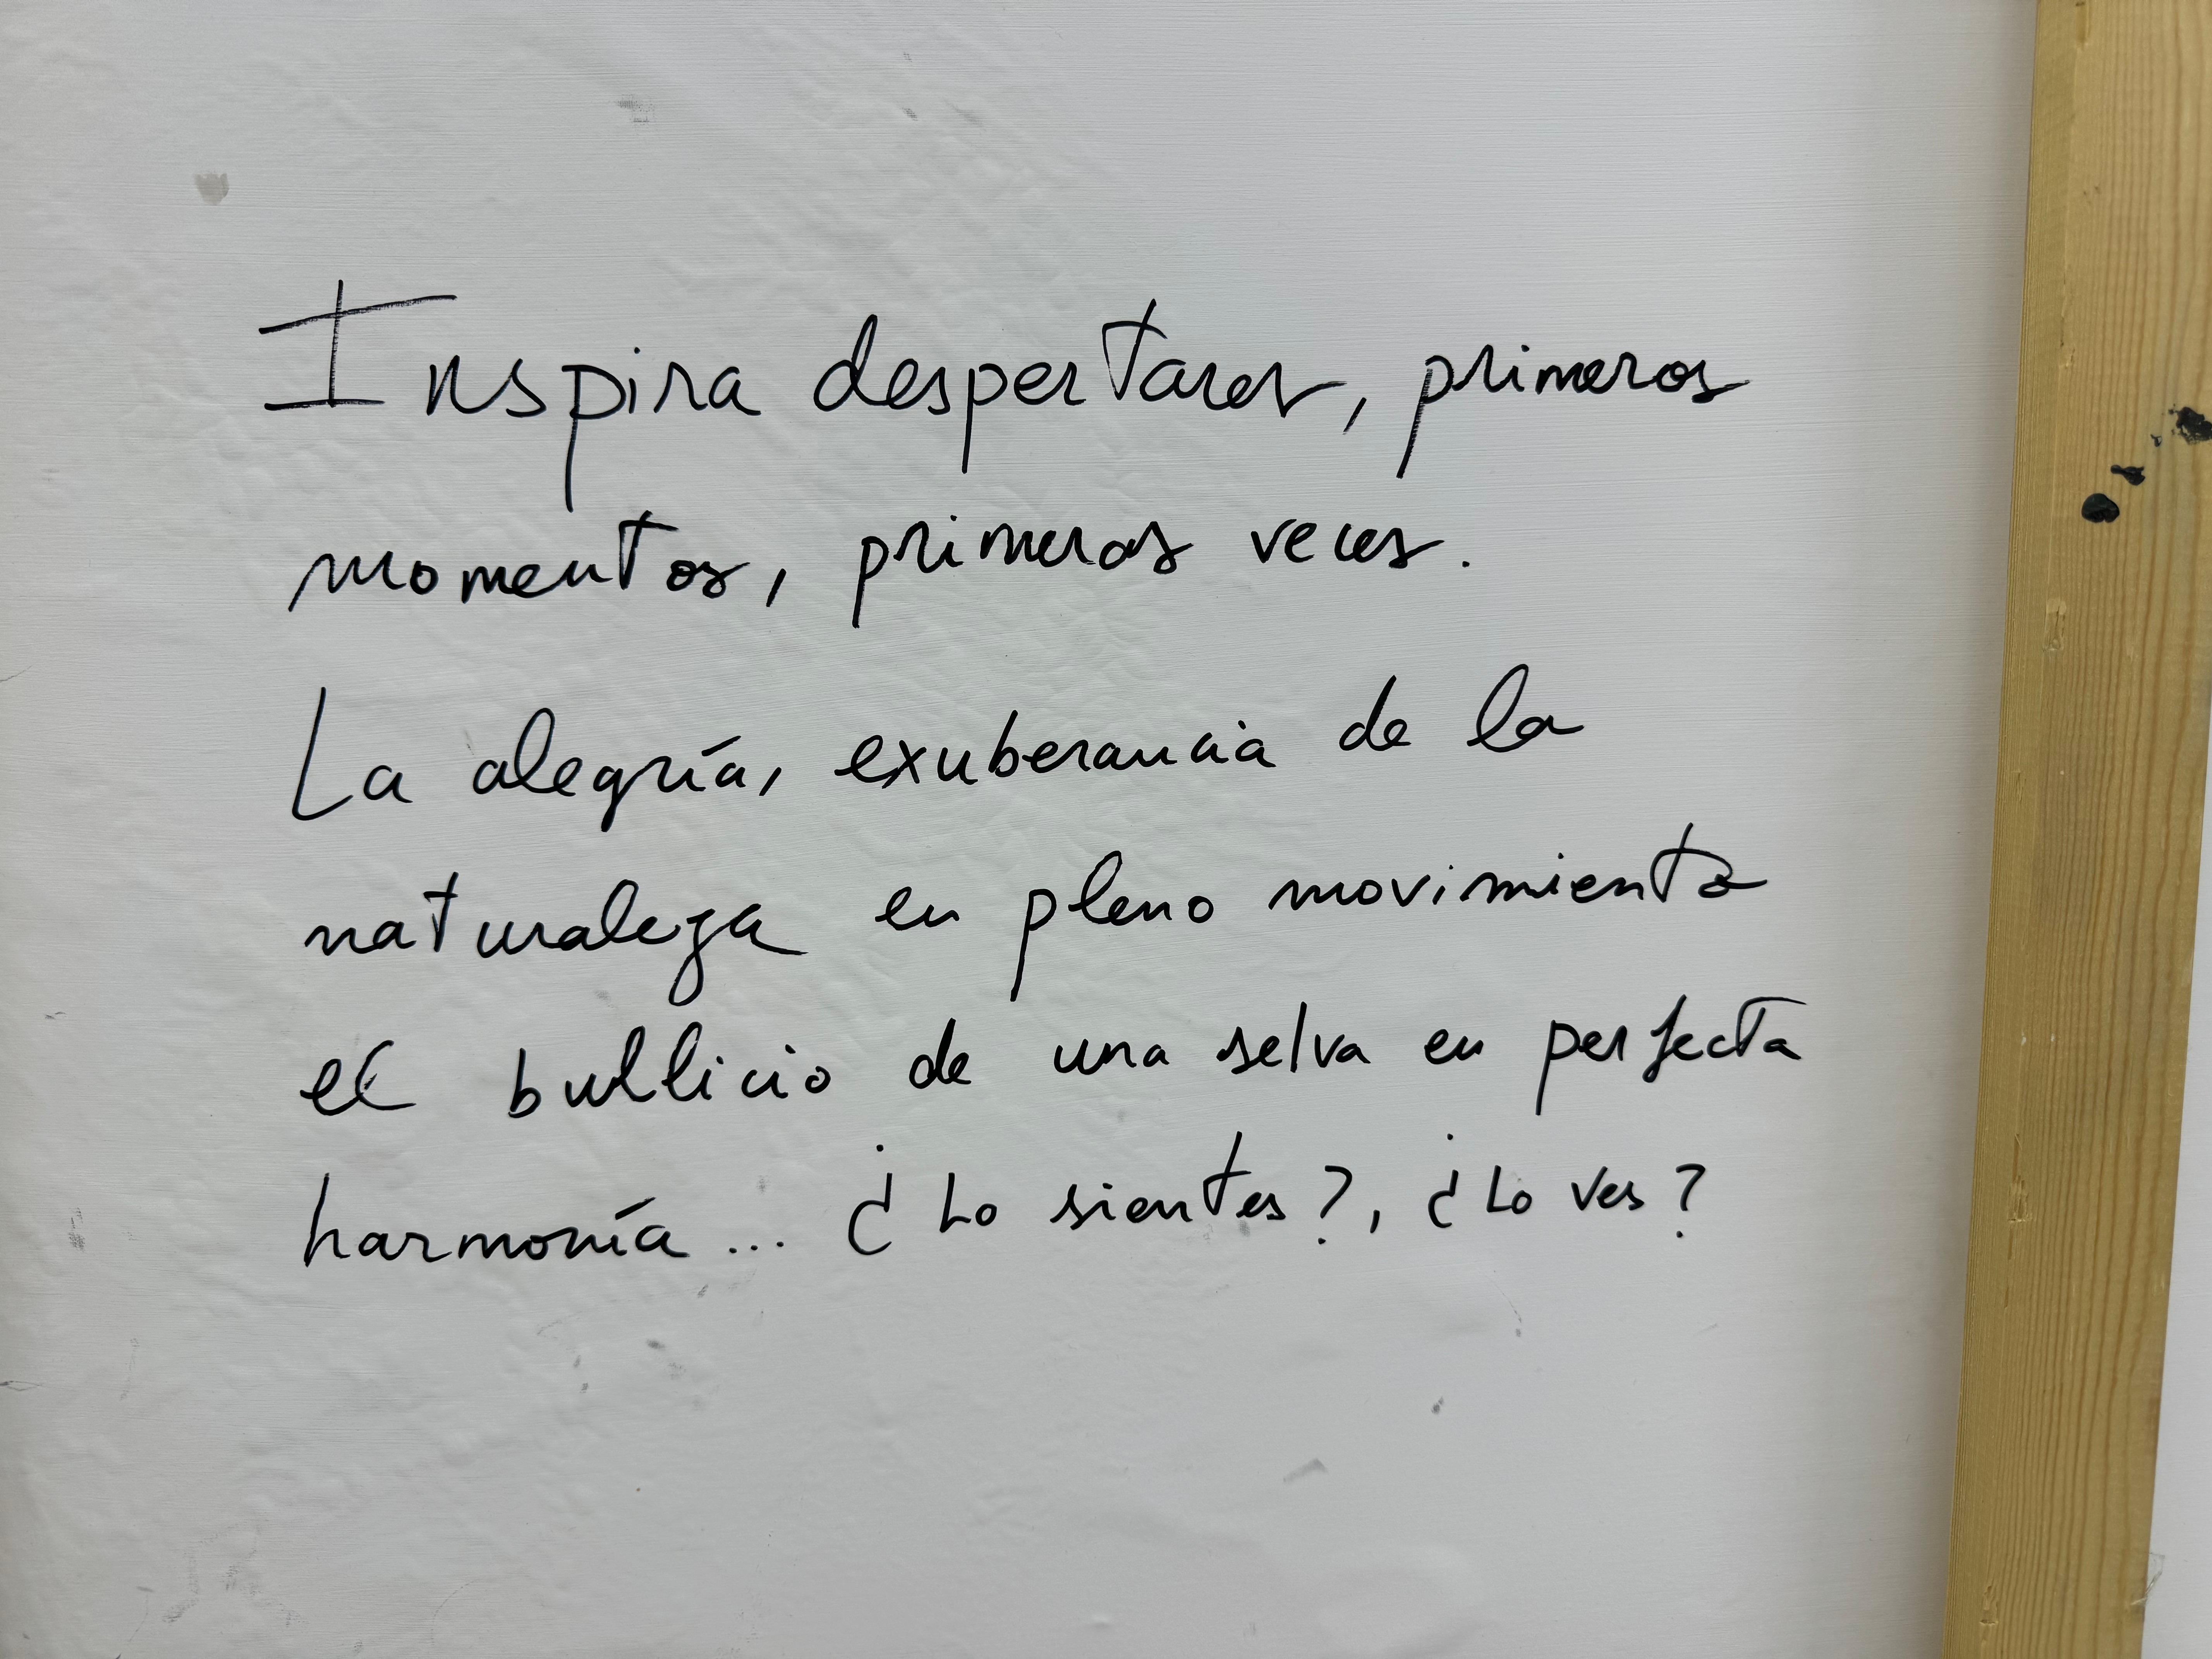 Inspira despertares, primeros
momentos, primeras veces.
La alegría, exuberancia de la
naturaleza en pleno movimiento
el bullicio de una selva en perfecta
harmonía... ¿Lo sientes?, ¿Lo ves?